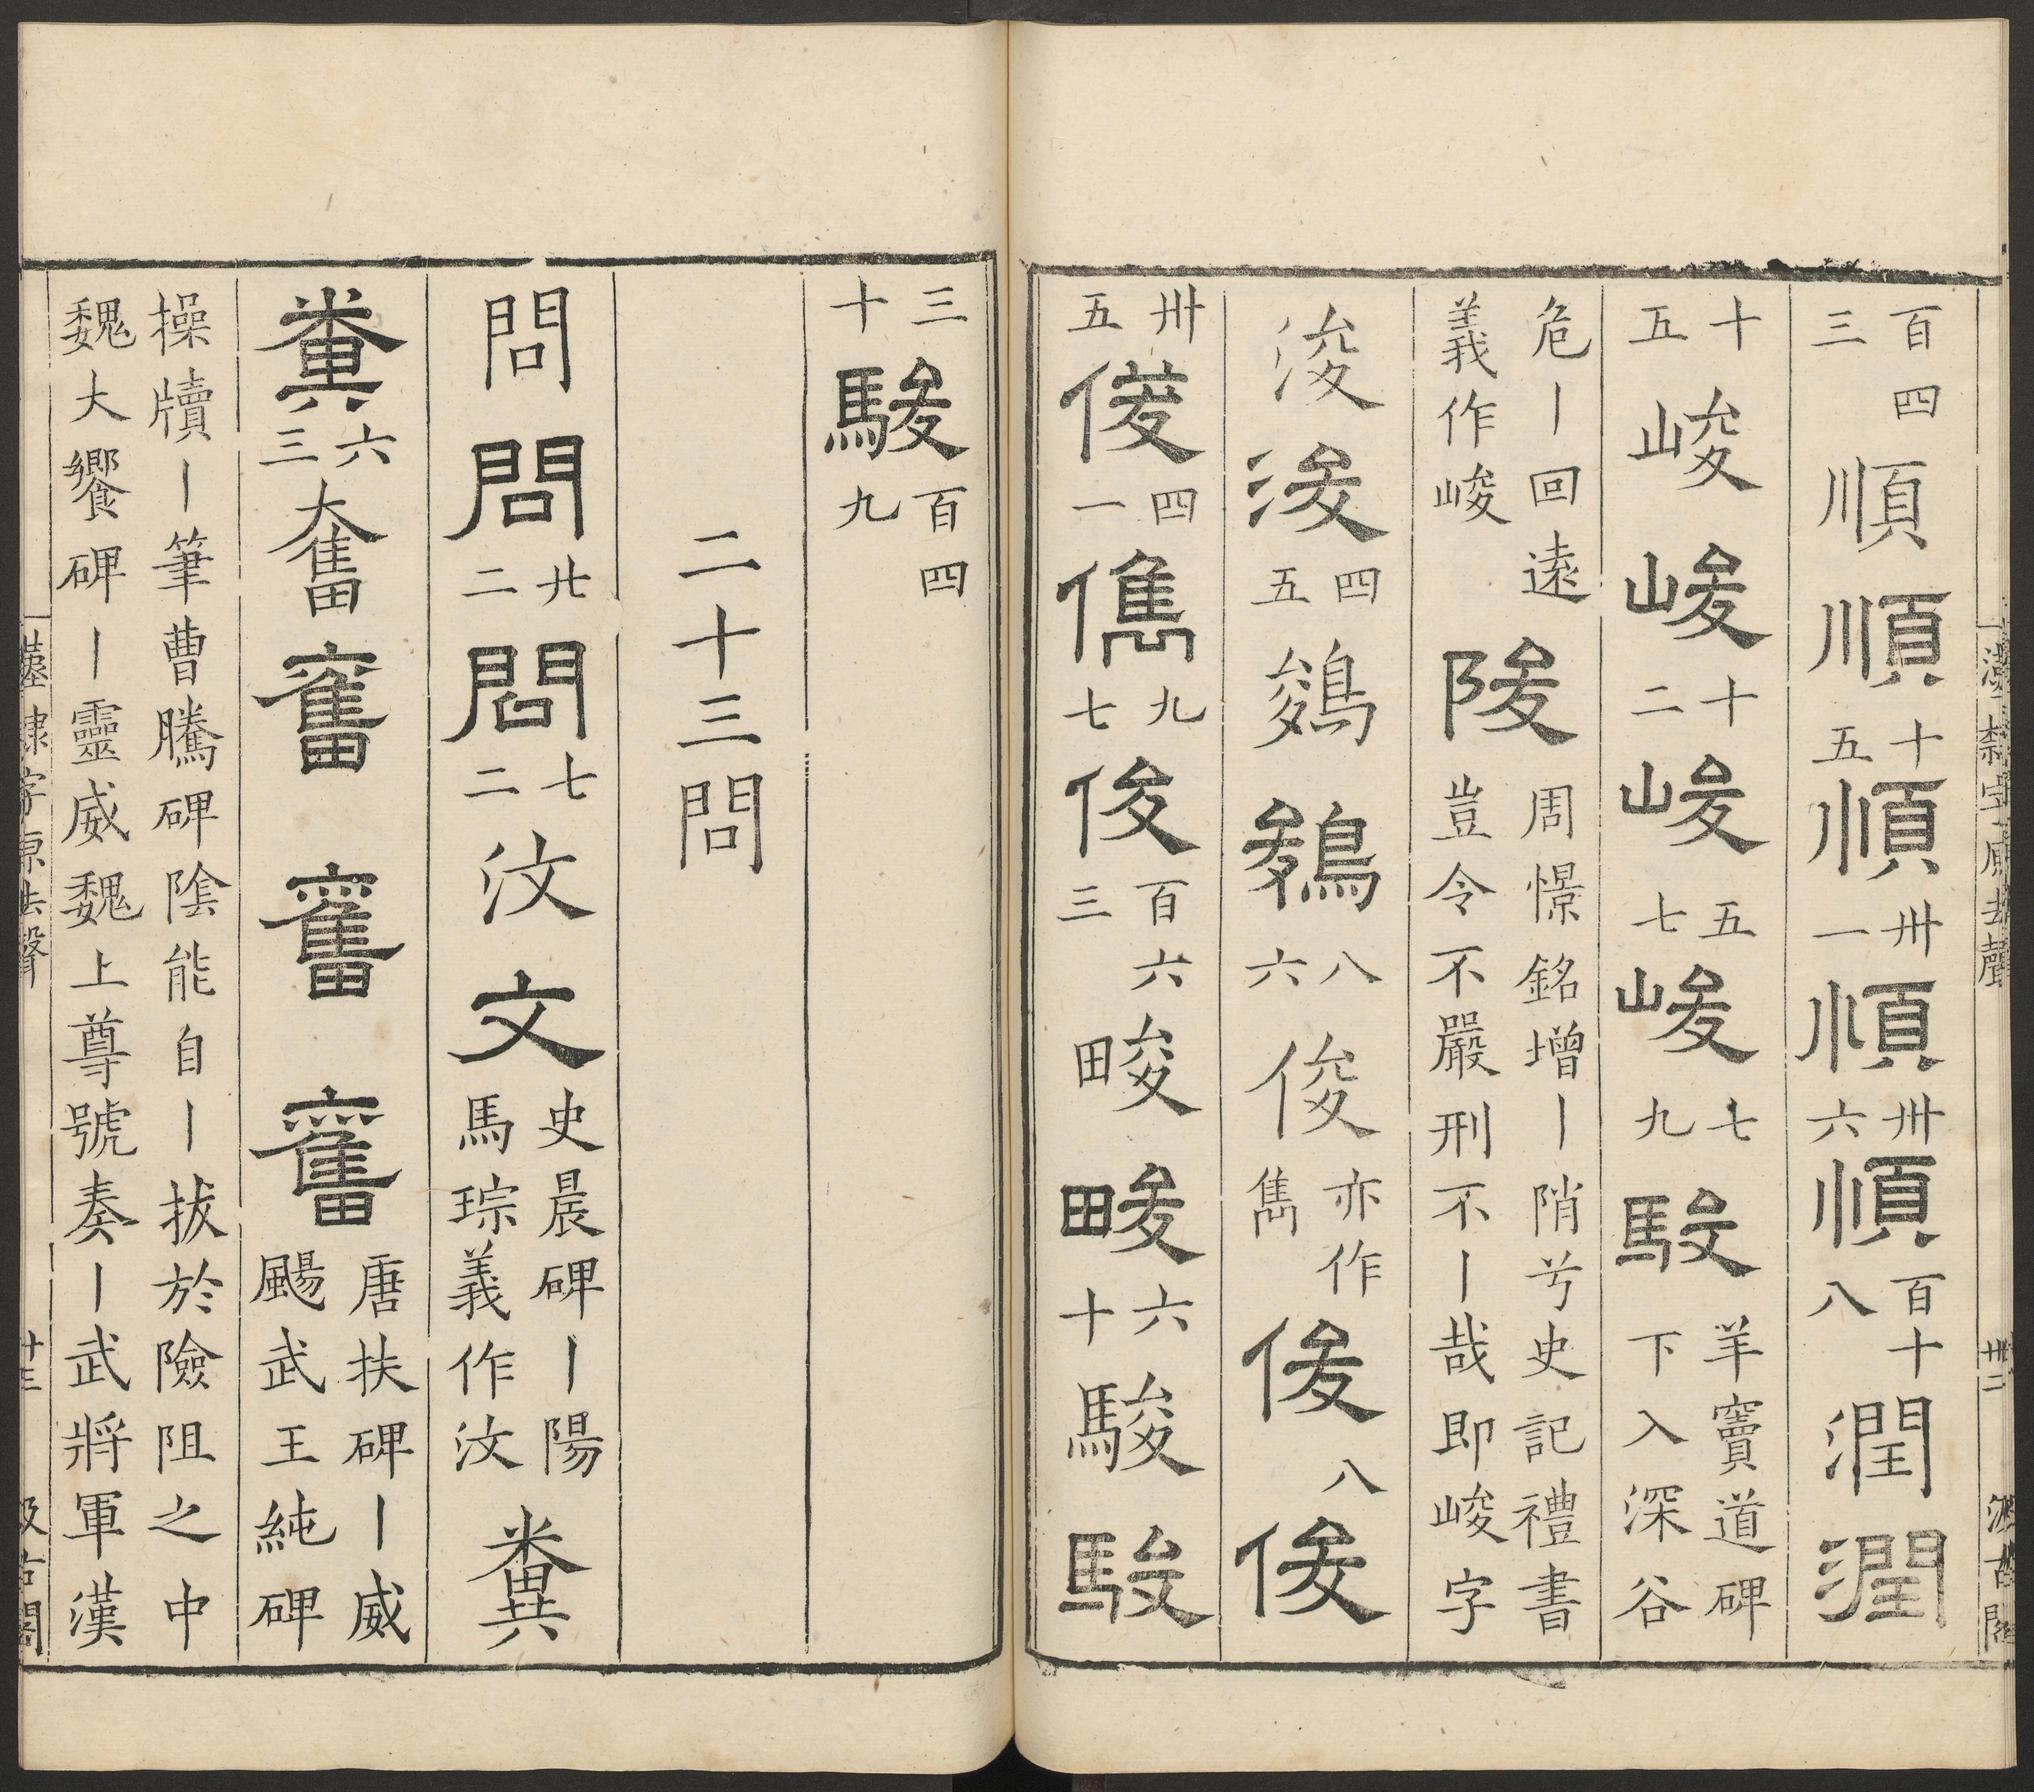 漢隸字原去聲 卅二 汲古閣
百四三順順十五順卅一順卅六順百十八潤潤
十五峻峻十二峻五七峻七九駿羊竇道碑下入深谷
危丨回遠義作峻陖周憬銘增丨陗兮史記禮書豈令不嚴刑不丨哉即峻字
浚浚四五鵕鵕八六俊亦作雋俊八俊
卅五俊四一儁九七俊百六三畯畯六十駿駿
三十駿百四九
二十三問
問問廿二問七二汶文史晨碑丨陽馬琮義作汶糞
糞六三奮奮奮奮唐扶碑丨威颺武王純碑
操牘丨筆曹騰碑陰能自丨拔於險阻之中魏大饗碑丨靈威魏上尊號奏丨武將軍漢
漢隸字原去聲 汲古閣